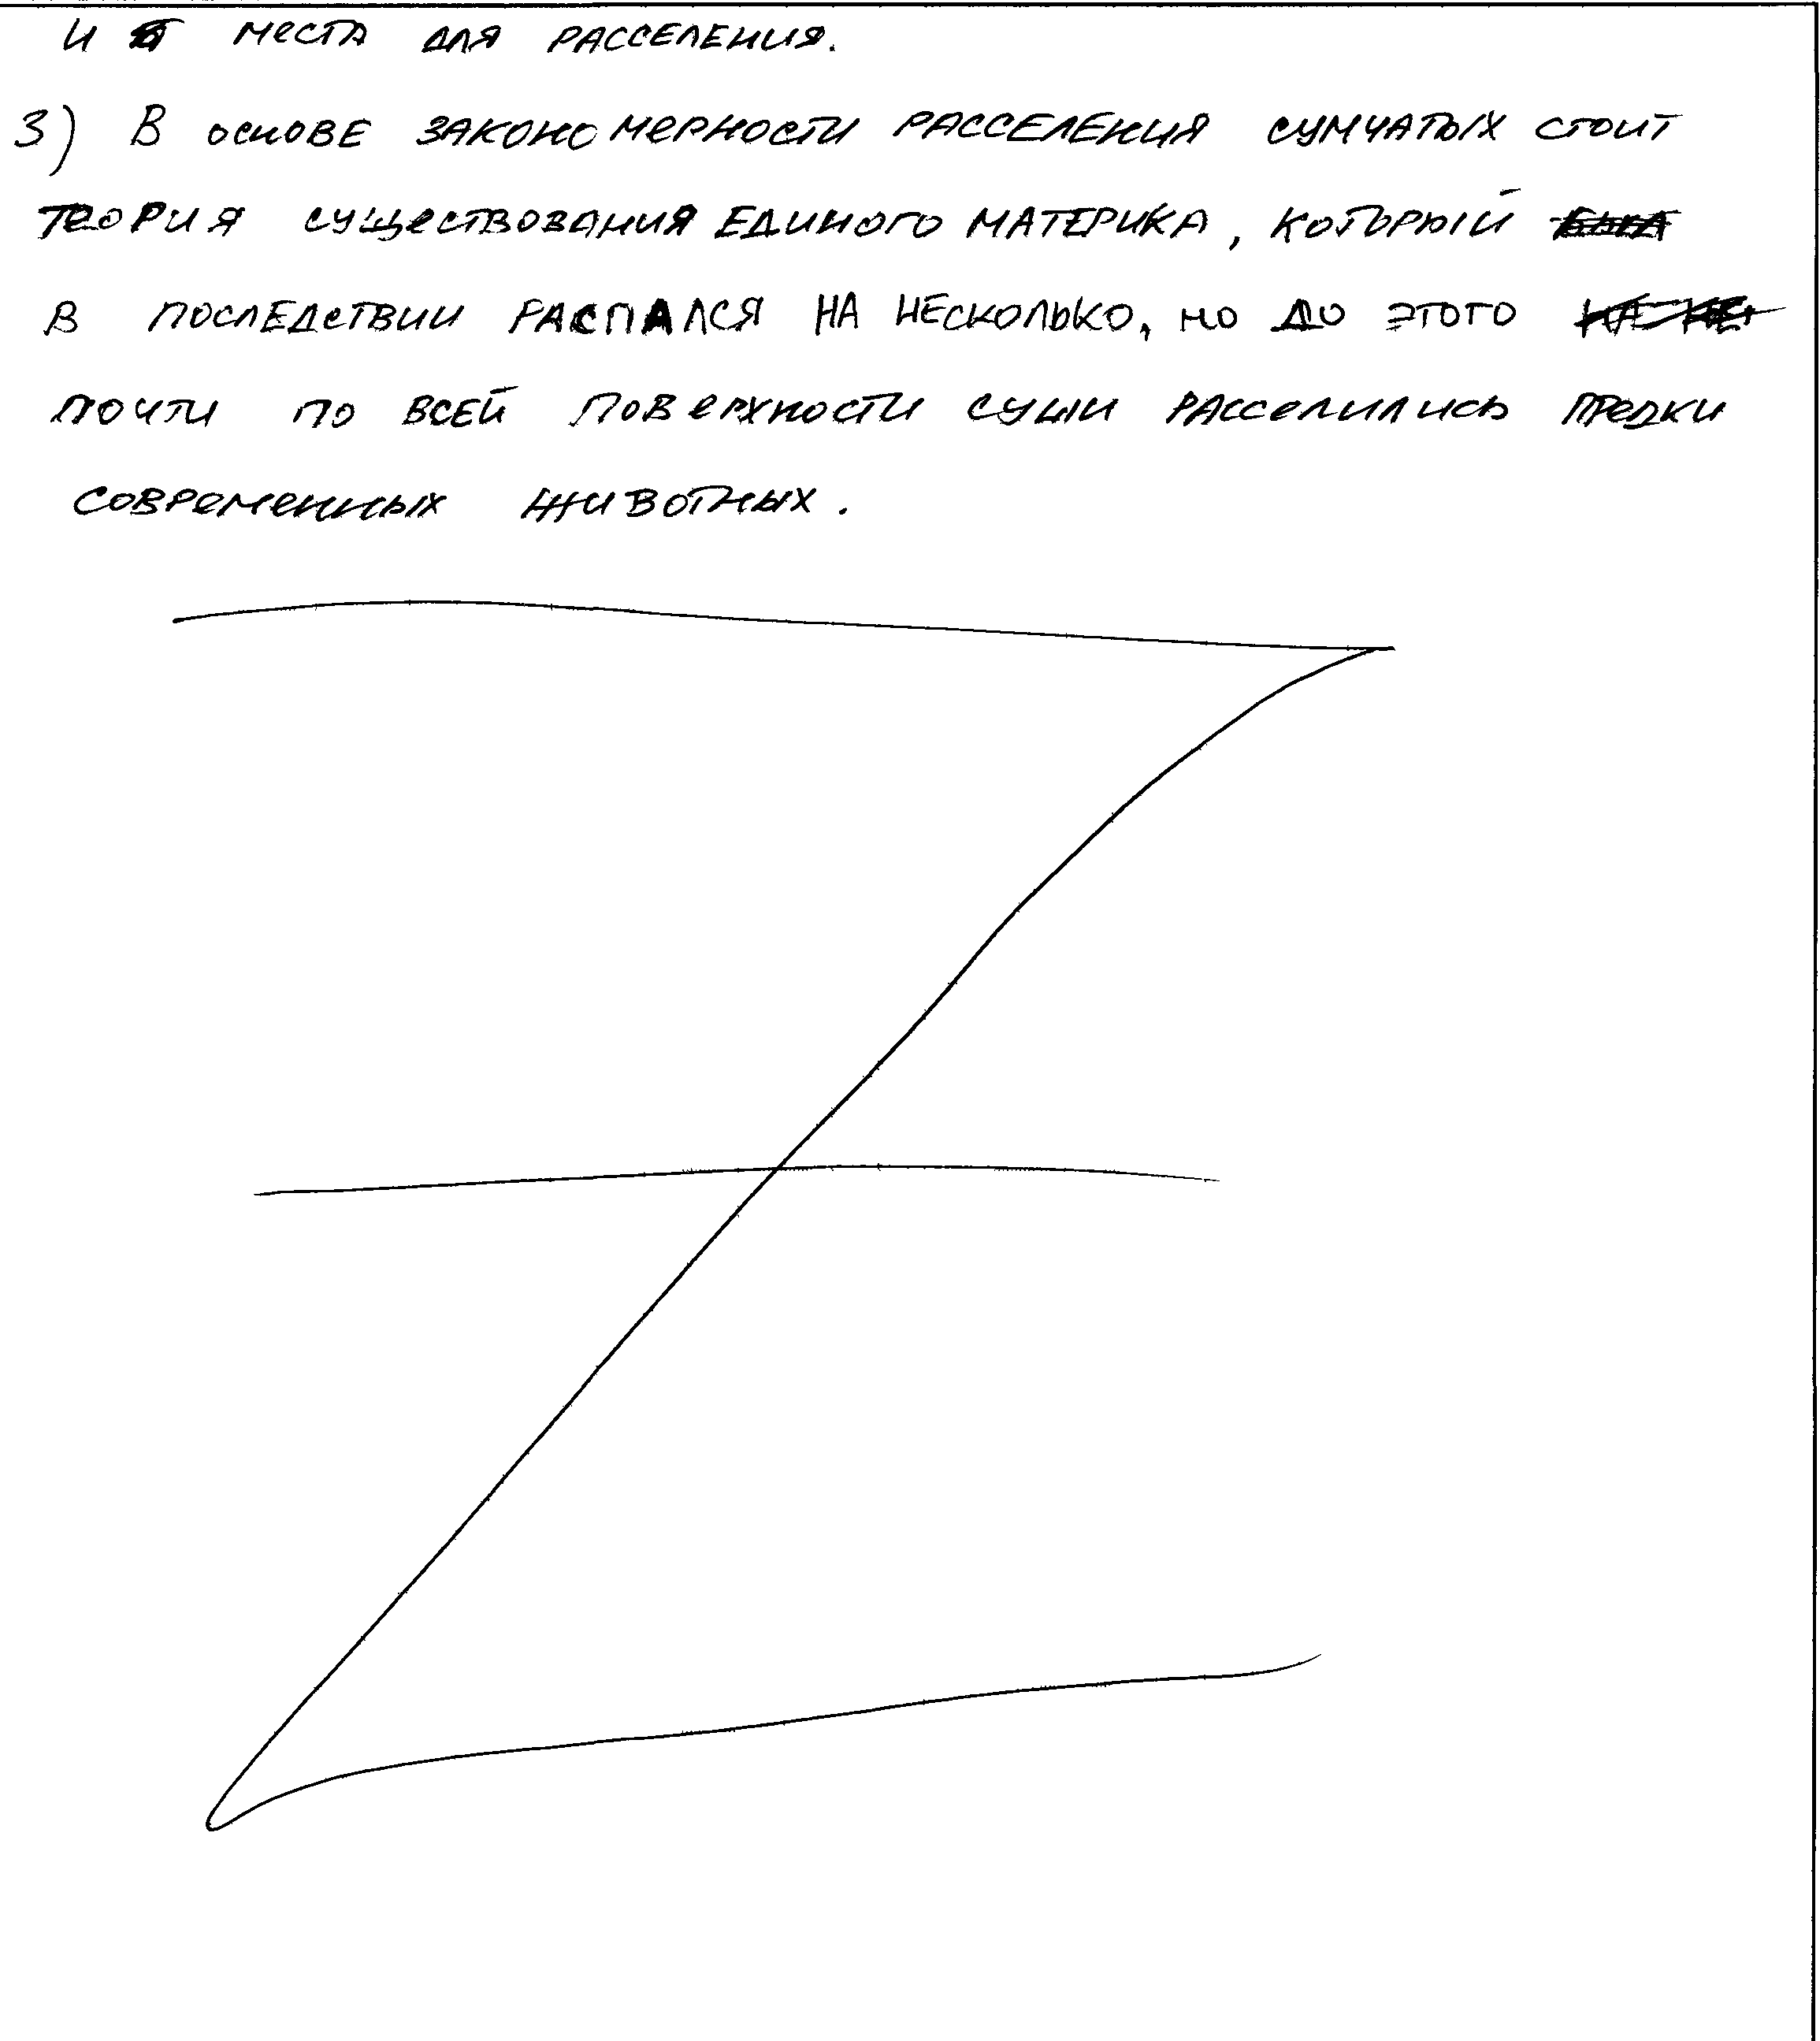 и места для расселения.
3) В основе закономерности расселения сумчатых стоит
теория существования единого материка, который
в последствии распался на несколько, но до этого
почти по всей поверхности суши расселились предки
современных животных.